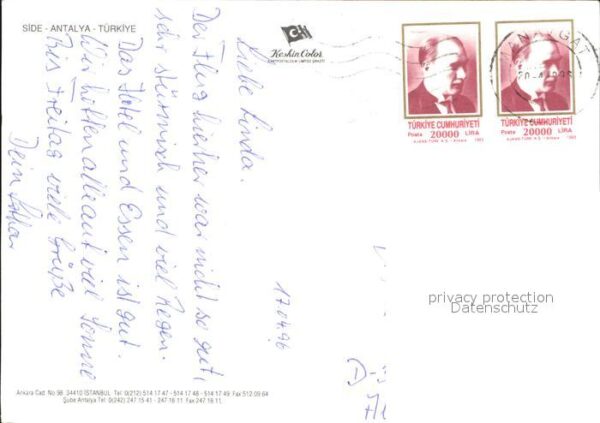 SIDE - ANTALYA - TÜRKİYE
Keskin Color
TÜRKİYE CUMHURİYETİ
Posta 20000 LİRA
TÜRKİYE CUMHURİYETİ
Posta 20000 LİRA
17.04.96
Liebe Linda.
Der Flug hierher war nicht so gut,
sehr stürmisch und viel Regen.
Das Hotel und Essen ist gut.
Wir hoffen alle auf viel Sonne
Bis Freitag viele Grüße
Dein
privacy protection
Datenschutz
D-
Ankara Cad. No 98 34410 İSTANBUL Tel: 0(212) 514 17 47 - 514 17 48 - 514 17 49 Fax 512 09 64
Şube Antalya Tel: 0(242) 247 15 41 - 247 16 11 Fax 247 16 11